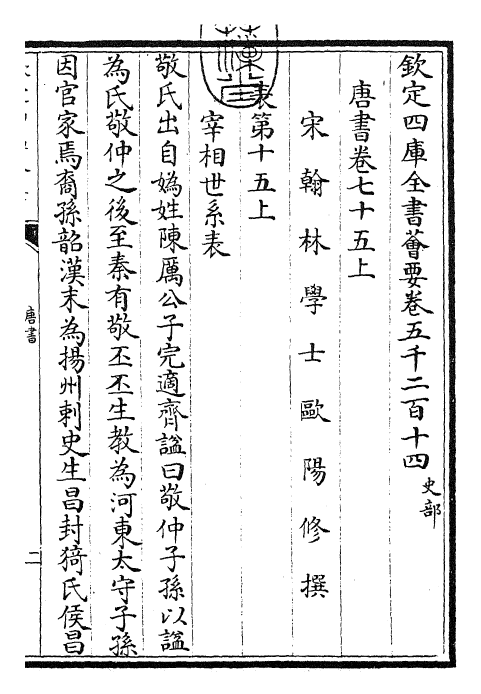 欽定四庫全書薈要卷五千二百十四史部
唐書卷七十五上
宋翰林學士歐陽修撰
表第十五上
宰相世系表
敬氏出自媯姓陳厲公子完適齊諡曰敬仲子孫以諡
為氏敬仲之後至秦有敬丕丕生教為河東太守子孫
因官家焉裔孫韶漢末為揚州刺史生昌封猗氏侯昌
唐書
二